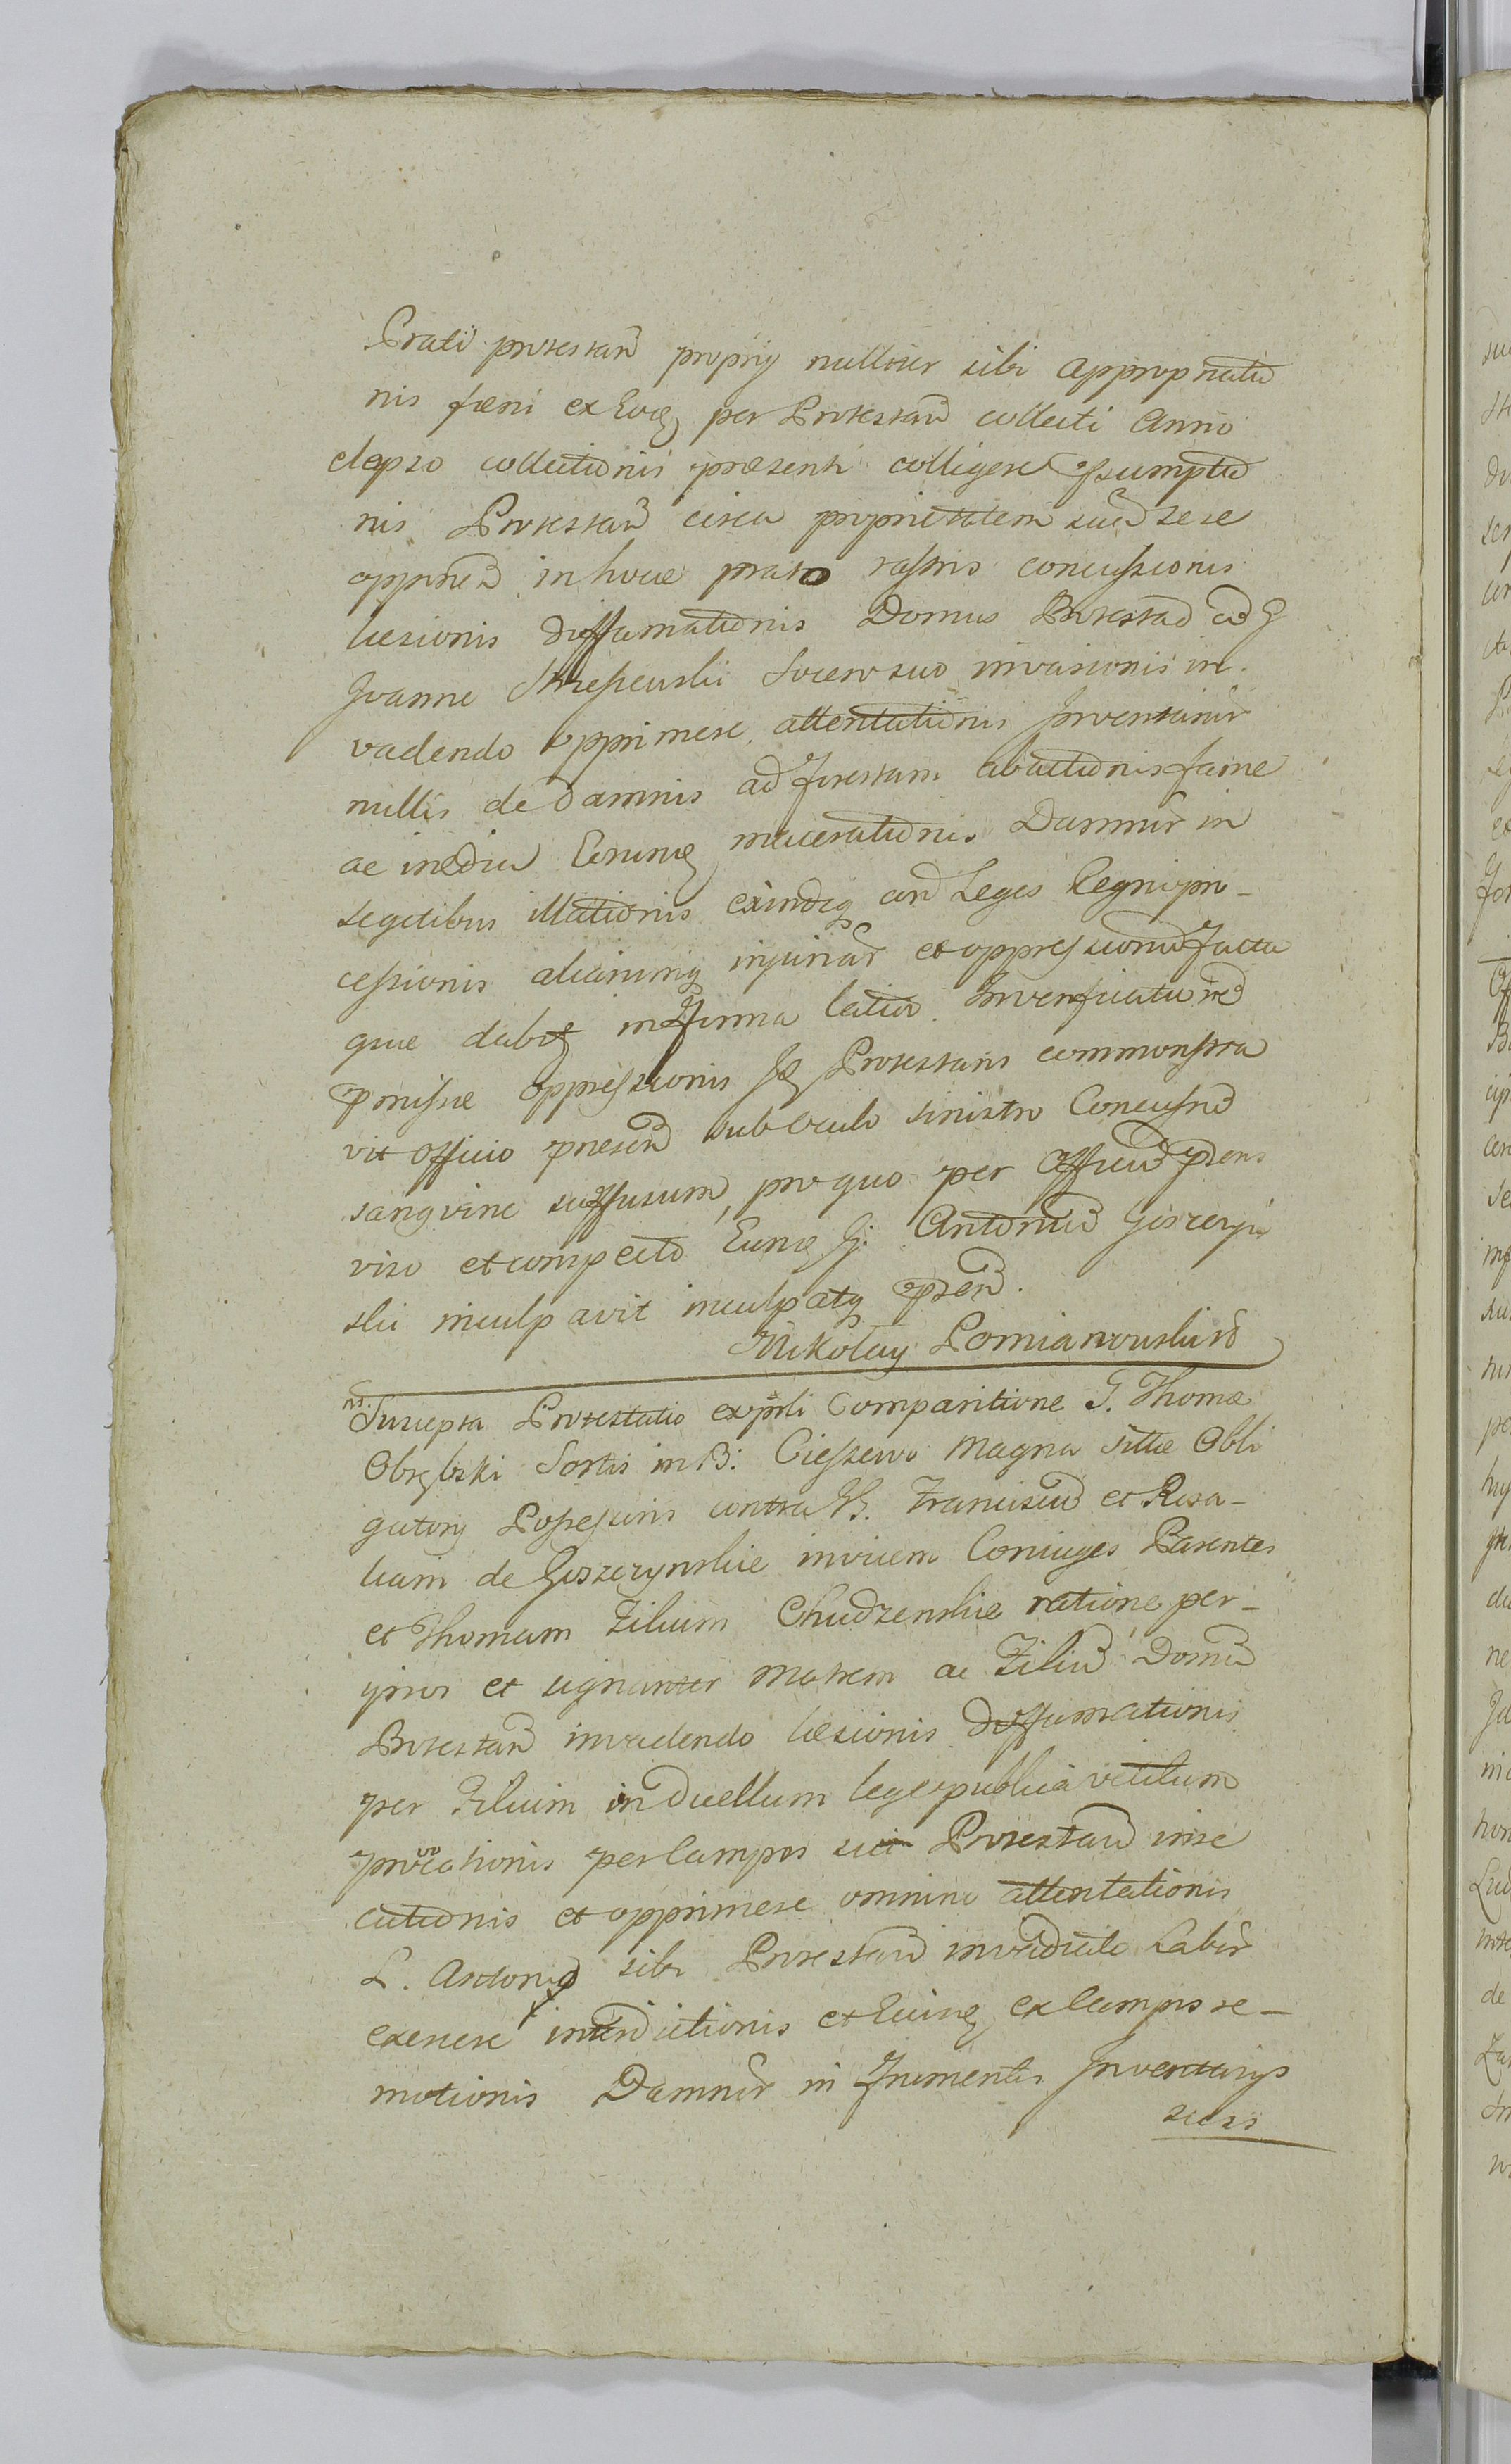 Prati protestan̄ proprij nulliter sibi appropriatio
nis fœni ex Eoq̃ per Protestan̄ collecti Anno
elapso collectionis præsenti colligere p̱sumptio
nis Protestan̄ circa proprietatem suā sese
oppinen̄ in hocce prato rastris concussionis
læsionis diffamationis Domus Protestan̄ cū G
Joanne Socero suo invasionis in
vadendo opprimere attentationis Inventarior̄
nullis de damnis ad forestam abactionis fame
ac inedia Eorumq̃ macerationis Damnor̄ in
segetibus illationis exindeq̃ con̄ Leges Regni pro-
cessionis aliarumq̃ injuriar̄ et oppressionū facta
quæ dabit̃ in Forma latior̄ Inverificationē
p̱missæ oppressionis Id̃ Protestans commonstra
vit officio præsen̄ sub oculo sinistro Concussionē
sangvine suffusum, pro quo per Officiū p̱sens
viso et conspecto Eunq̃ G: Antoniū Goszczyń
ski inculpavit inculpatq̃ p̱sen̄.
Mikołay Pomianowski
ns. Suscepta Protestatio ex p̱sli Comparitione G. Thomæ
Obrębski Sortis in B: Cieszewo Magna sittæ Obli
gatorij Possessoris contra GG. Franciscū et Rosa-
liam de Goszczynskie invicem Coniuges Parentes
et Thomam Filium Chudzenskie ratione per-
ipsos et signanter Matrem ac Filiū Domū
Protestan̄ invadendo læsionis diffamationis
per Filium in duellum lege publica vetitum
provocationis per Campos sui Protestan̄ inse
cutionis et opprimere omnino attentationis
L. Antonio sibi Protestan̄ Labor̄
exercere interdictionis et Eiusq̃ ex Campis re-
motionis Damnor̄ in Frumentis Inventarijs
suis